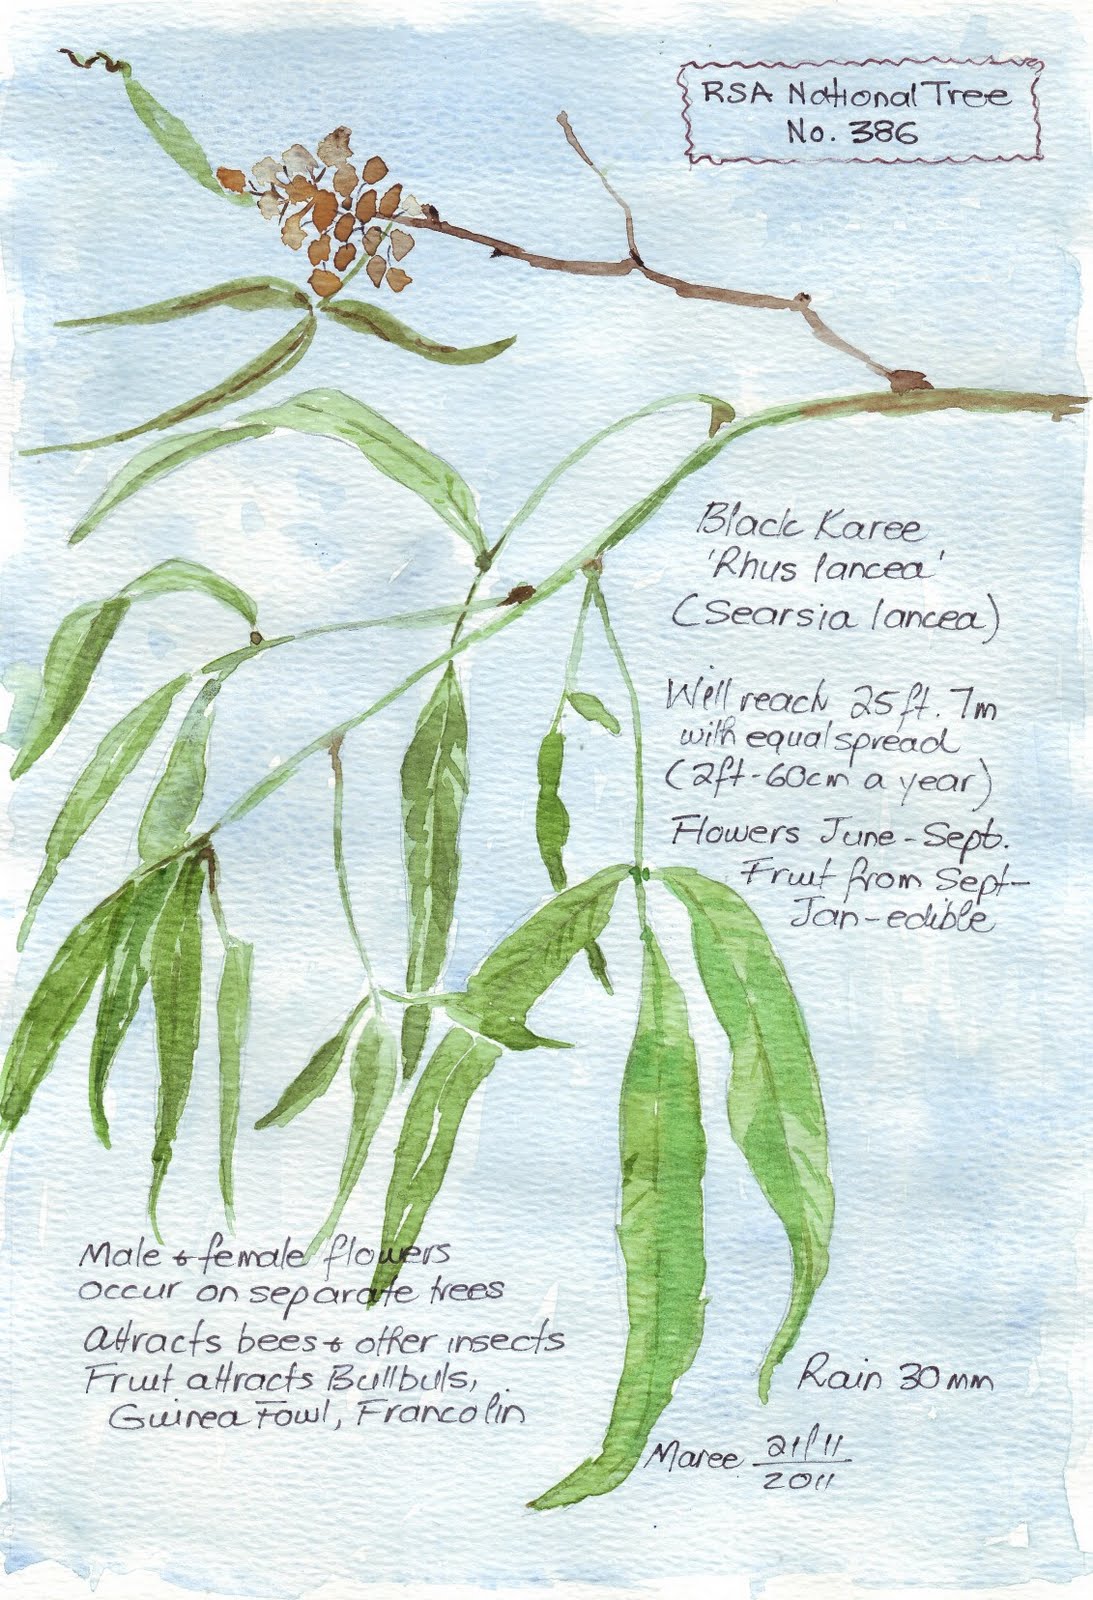 RSA National Tree
No. 386
Black Karee
'Rhus lancea'
(Searsia lancea)
Well reach 25ft. 7m
with equal spread
(2ft-60cm a year)
Flowers June-Sept.
Fruit from Sept-
Jan-edible
Male & female flowers
occur on separate trees
Attracts bees & other insects
Fruit attracts Bullbuls,
Guinea Fowl, Francolin
Rain 30mm
Maree 21/11
2011